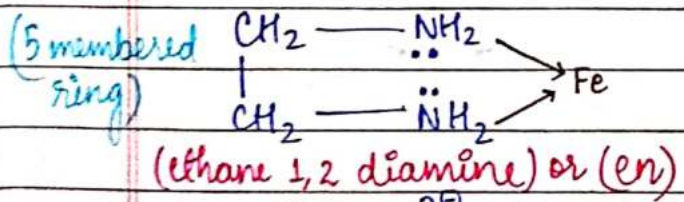 (5 membered ring)
CH2 — NH2
Fe
CH2 — NH2
(ethane 1,2 diamine) or (en)